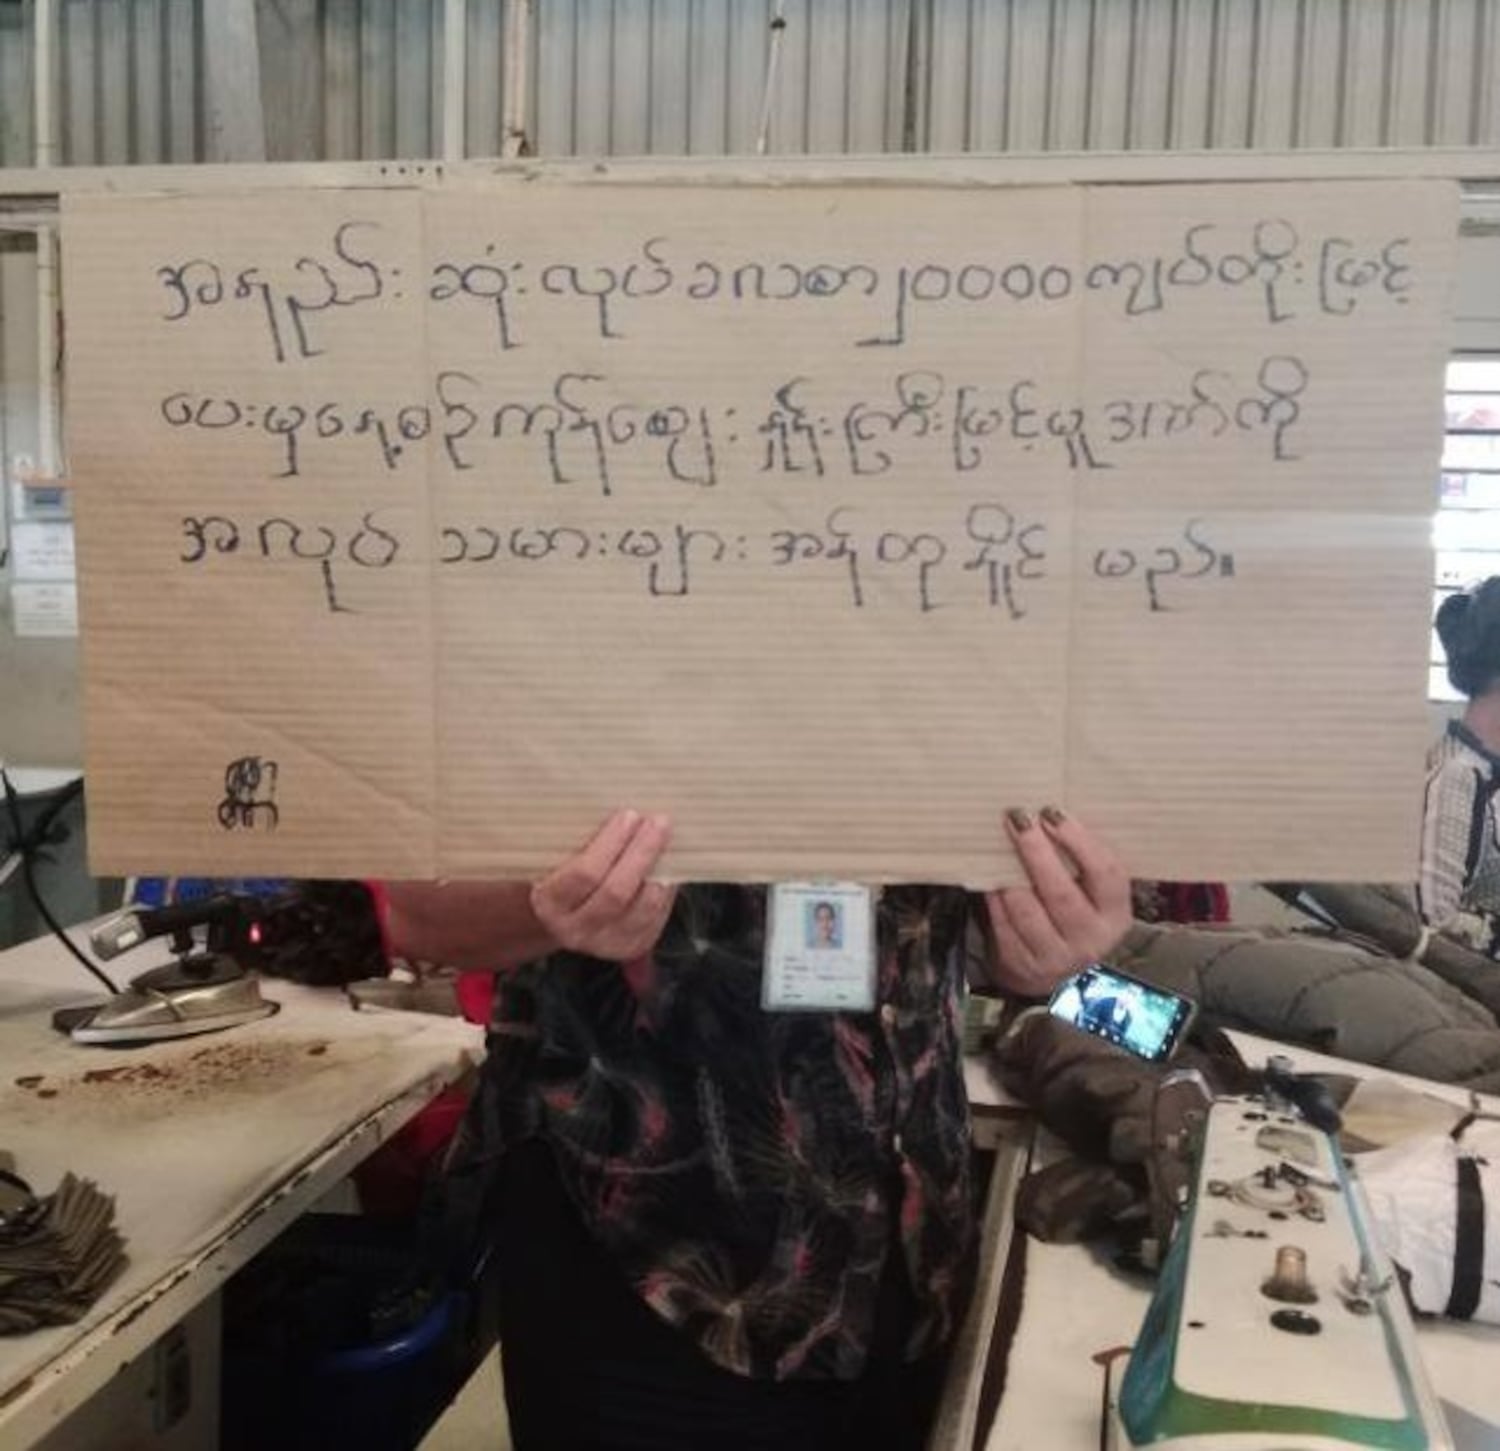 အရည်းဆုံးလုပ်ခလစာ၂၀၀၀၀ကျပ်တိုးမြင့်
ပေးမှနေ့စဉ်ကုန်ဈေးနှုန်းကြီးမြင့်မှုဒဏ်ကို
အလုပ်သမားများအန်တုနှိုင်မည်။